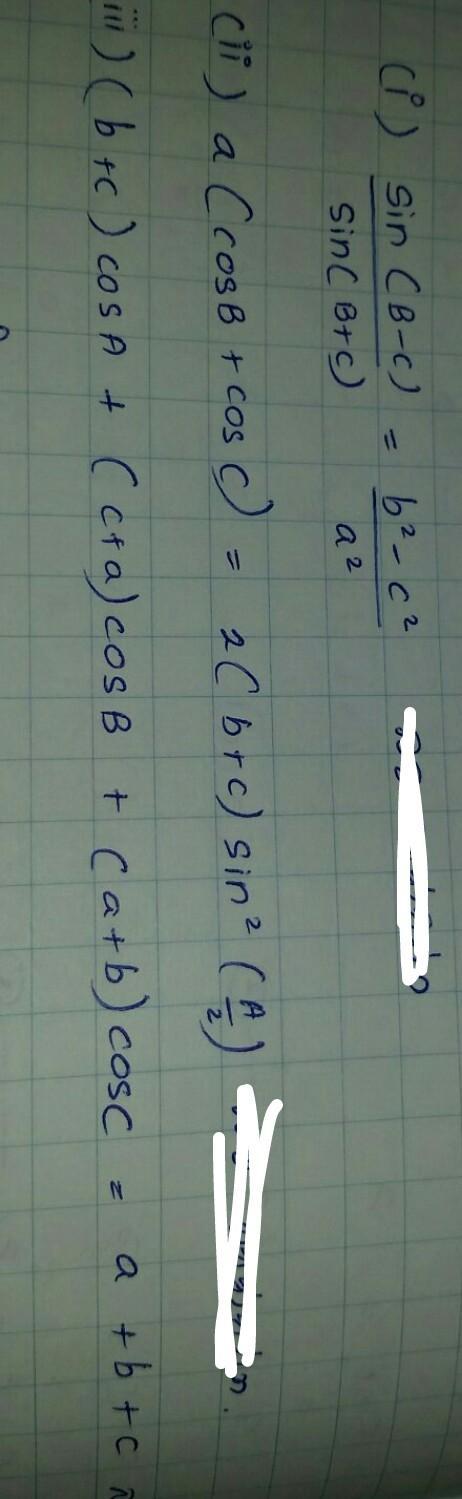 (i) sin(B-C)/sin(B+C) = b²-c²/a²
(ii) a(cosB + cosC) = 2(b+c) sin² (A/2)
iii) (b+c) cosA + (c+a) cosB + (a+b) cosC = a + b + c